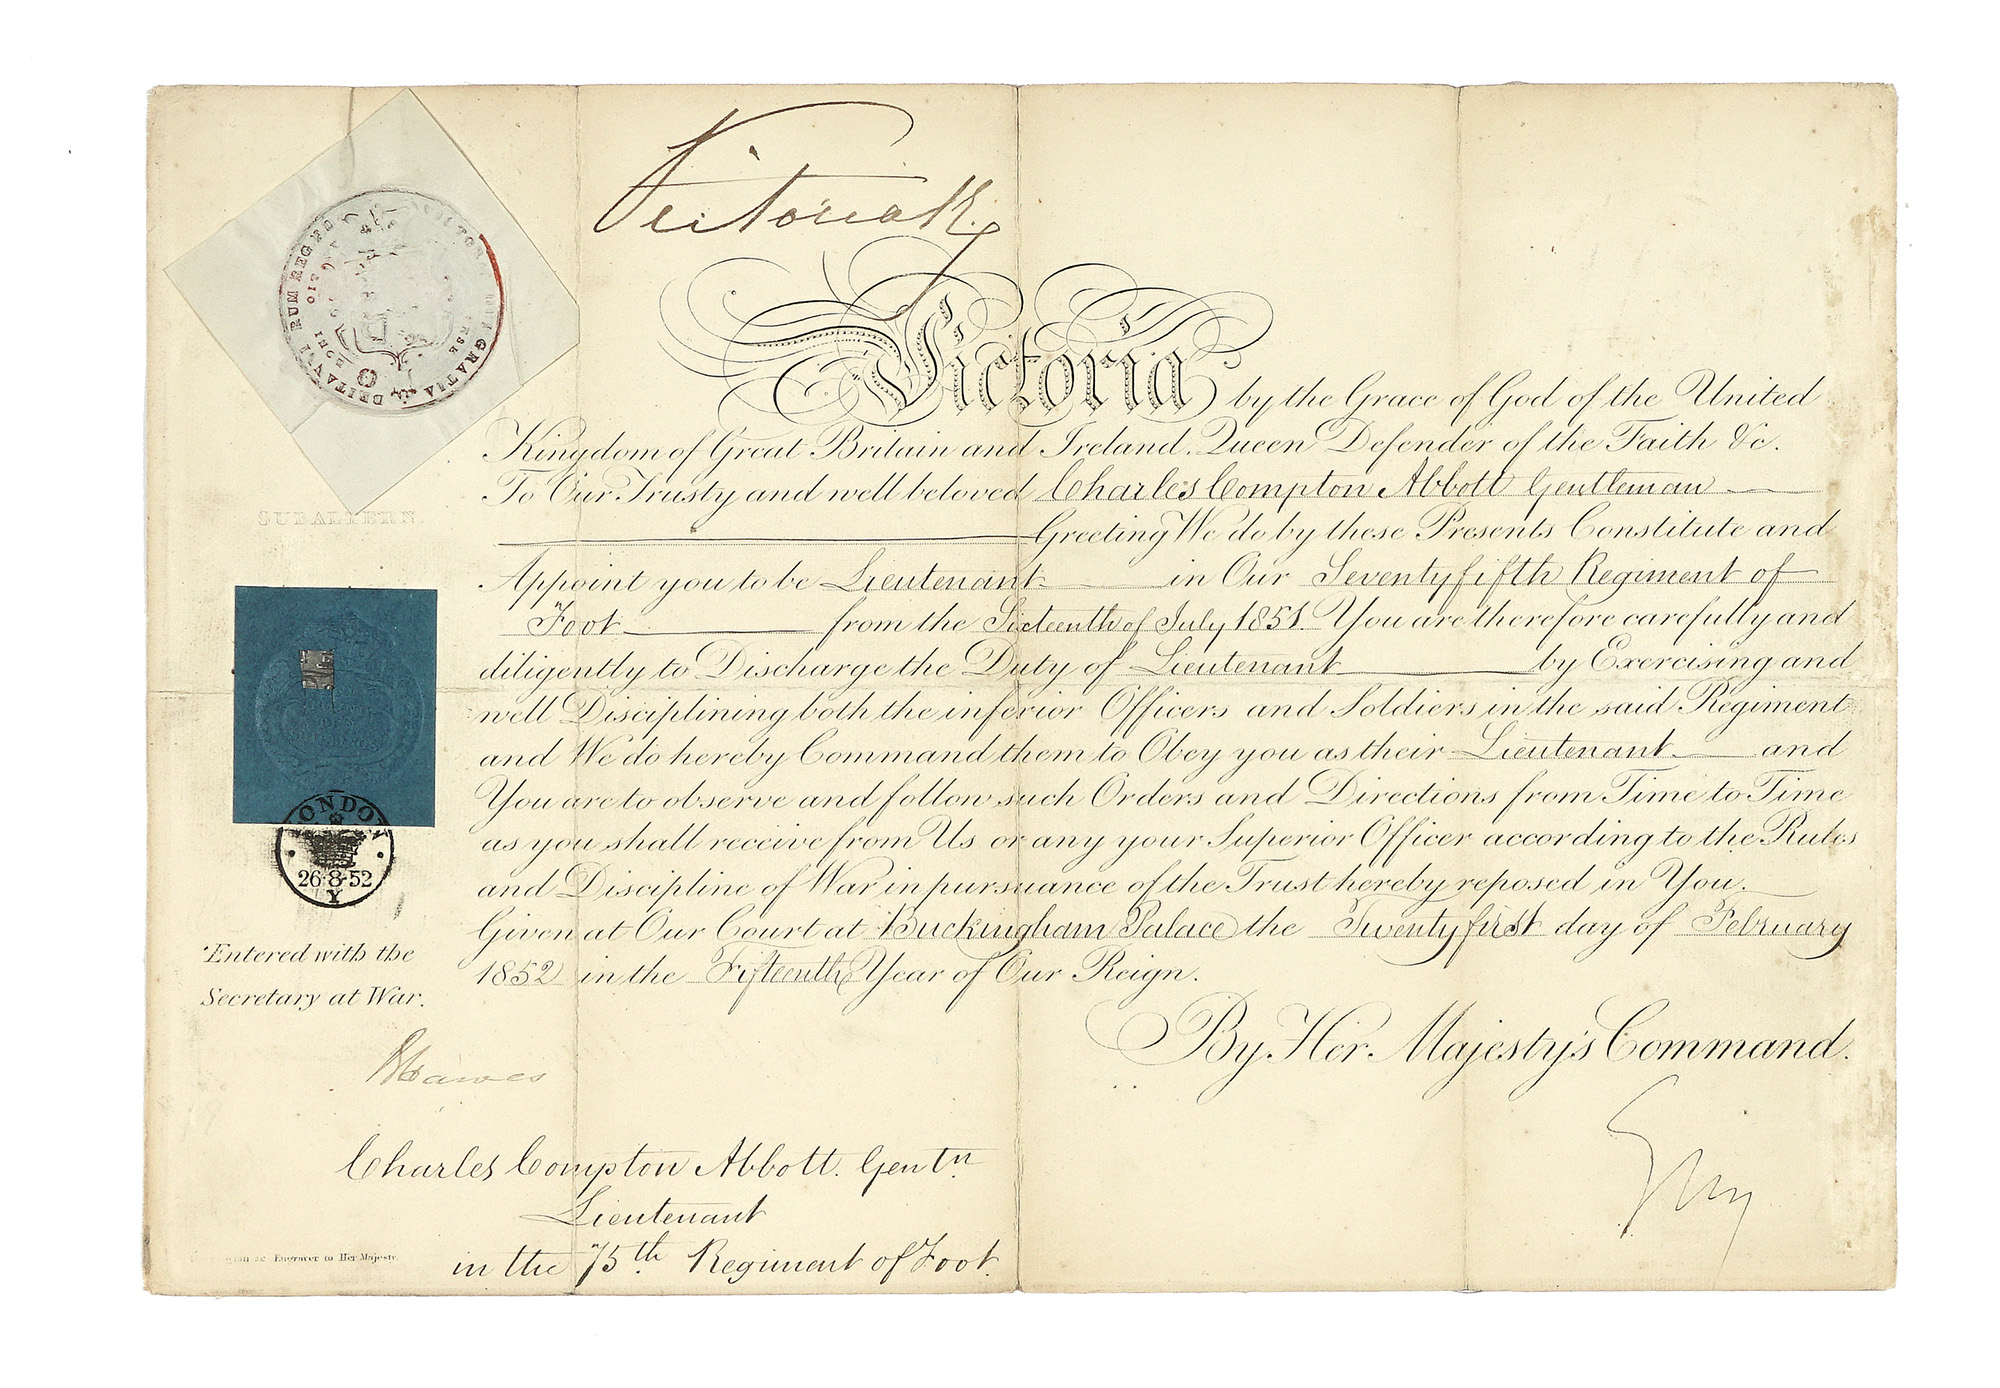 Victoria R.
Victoria by the Grace of God of the United
Kingdom of Great Britain and Ireland, Queen Defender of the Faith &c.
To Our Trusty and well beloved Charles Compton Abbott Gentleman
Greeting We do by these Presents Constitute and
Appoint you to be Lieutenant in Our Seventyfifth Regiment of
Foot from the Sixteenth of July 1851. You are therefore carefully and
diligently to Discharge the Duty of Lieutenant by Exercising and
well Disciplining both the inferior Officers and Soldiers in the said Regiment
and We do hereby Command them to Obey you as their Lieutenant and
You are to observe and follow such Orders and Directions from Time to Time
as you shall receive from Us or any your Superior Officer according to the Rules
and Discipline of War in pursuance of the Trust hereby reposed in You.
Given at Our Court at Buckingham Palace the Twentyfirst day of February
1852 in the Fifteenth Year of Our Reign.
By Her Majesty's Command.
SUBALTERN.
LONDON
26·8·52
Y
Entered with the
Secretary at War.
BHawes
Charles Compton Abbott. Gentn.
Lieutenant
in the 75th Regiment of Foot.
Engraver to Her Majesty.
GRATIA
DEI